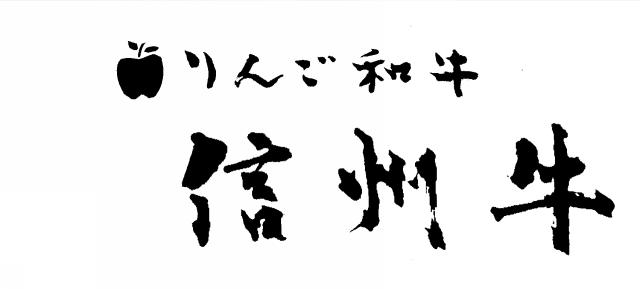 りんご和牛
信州牛